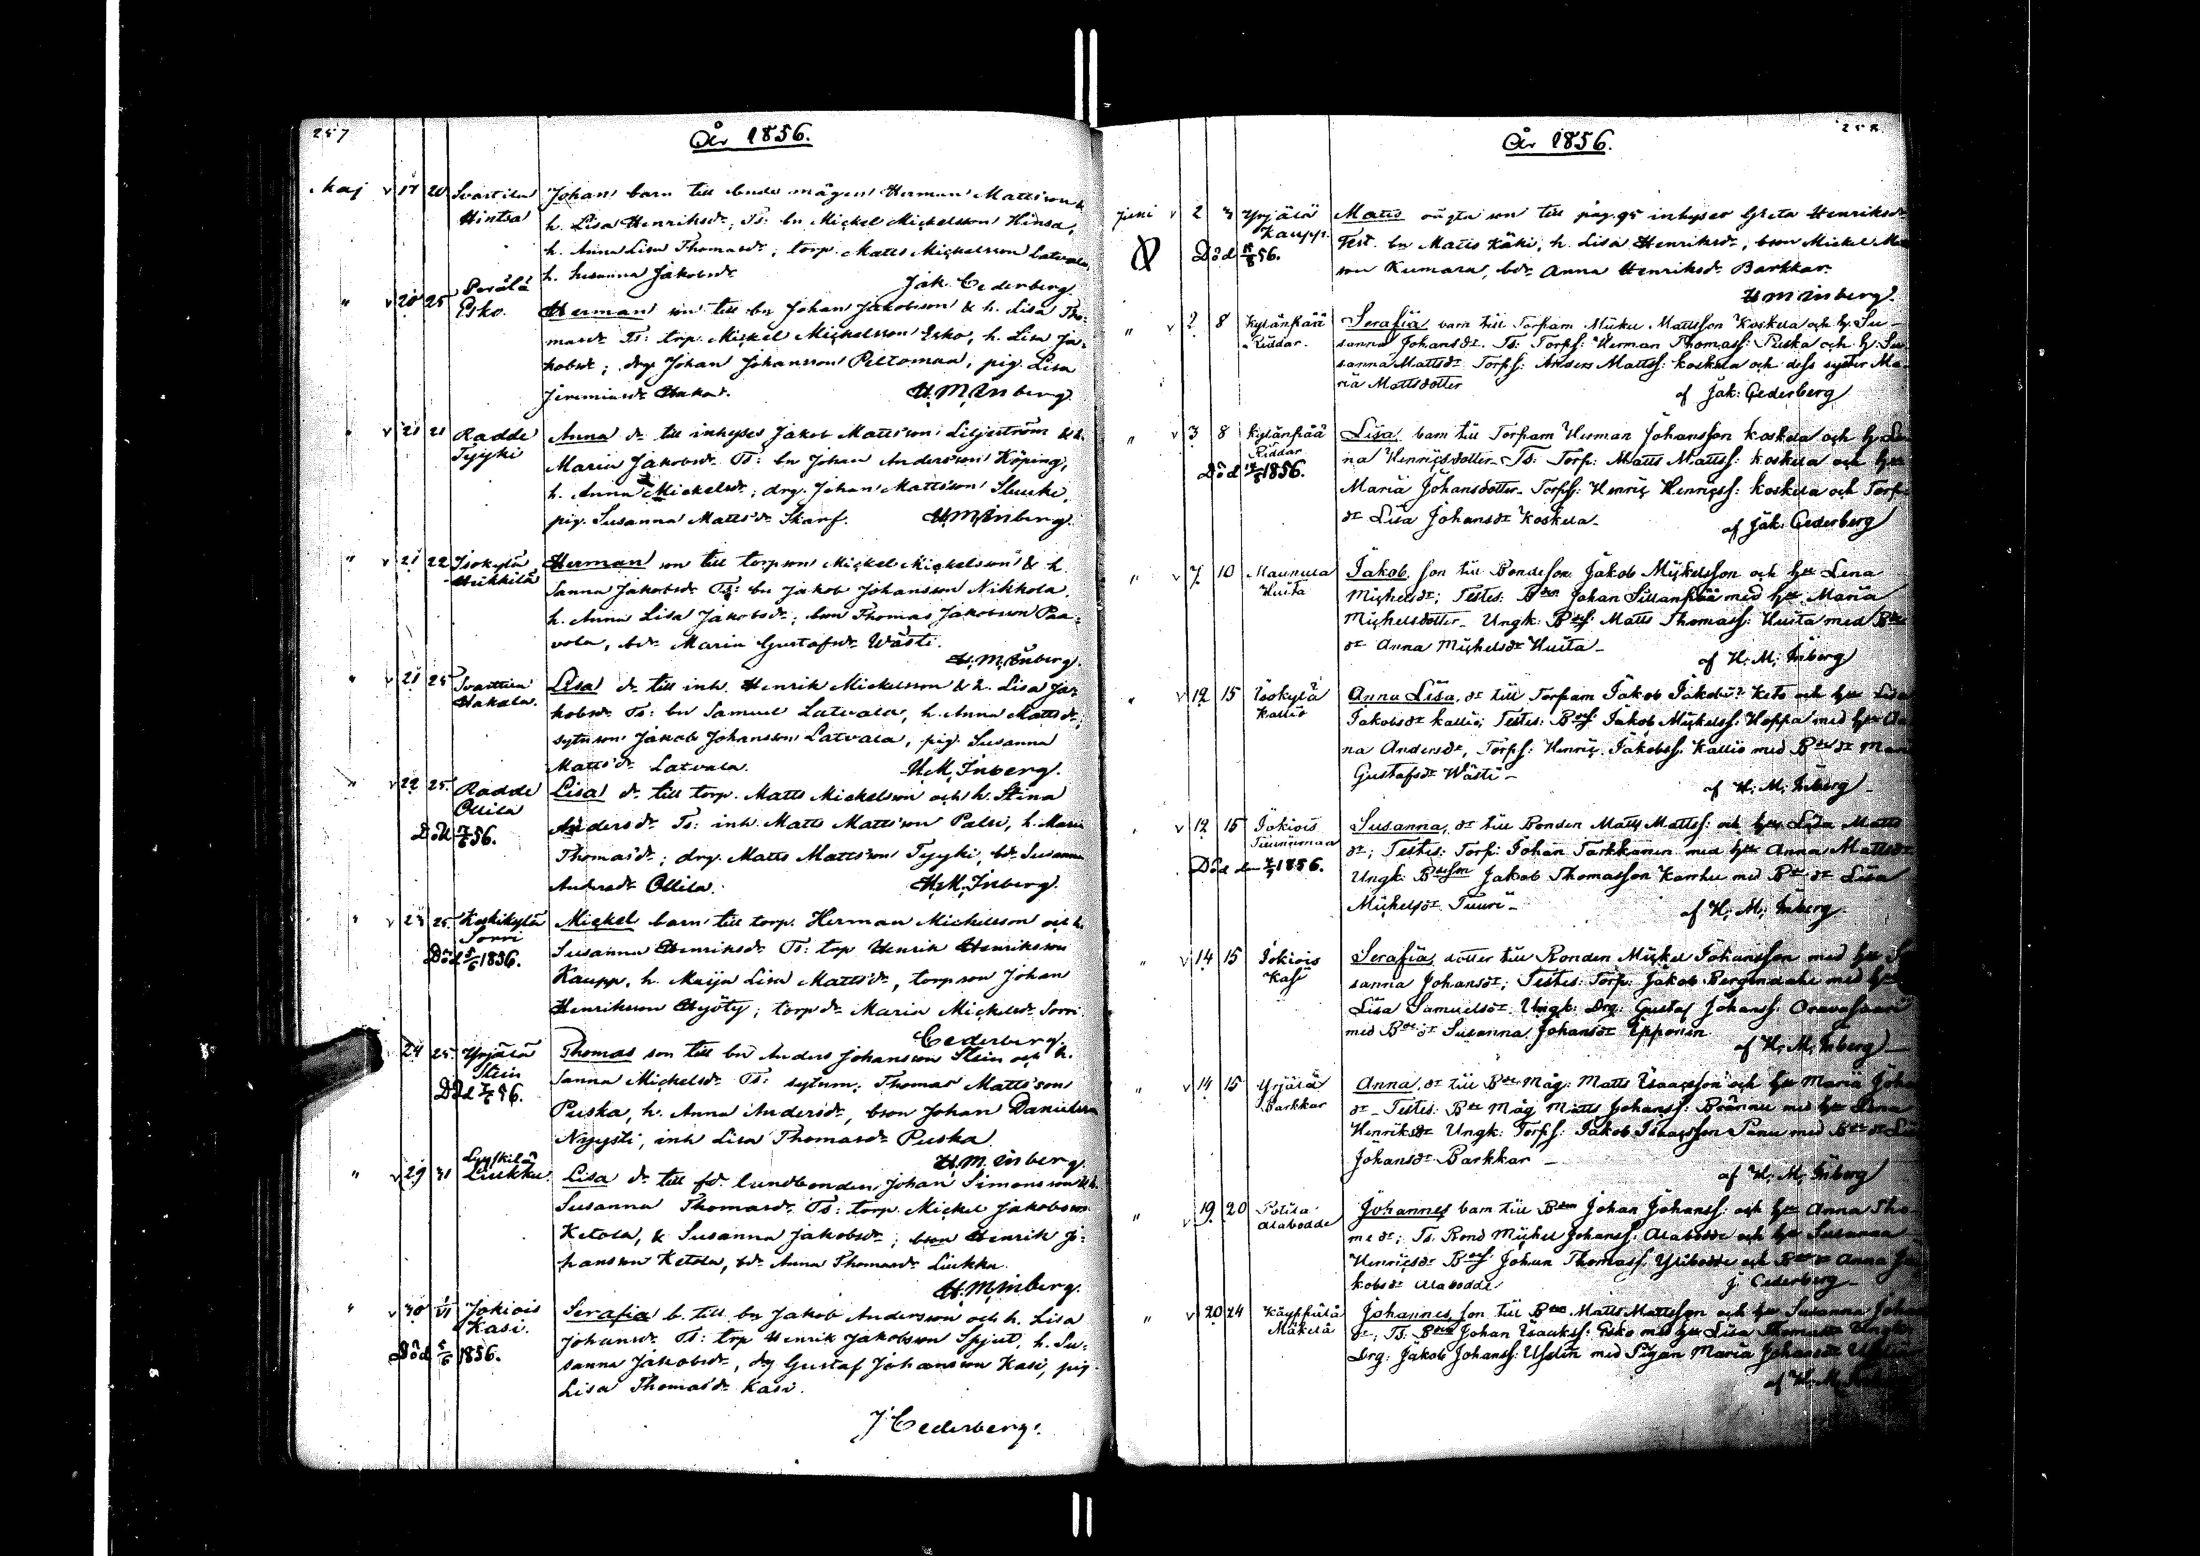 257
År 1856.
Maj v 17 20 Svartila Johan barn till bonde mågen Herman Mattsson &
Hintsa h. Lisa Henriksdr; Ts: bn Mickel Mickelsson Hinsa,
h. Anna Lisa Thomasdr; torp. Matts Mickelsson Latvala,
h. Susanna Jakobsdr Jak. Cederberg
" v 20 25 Perälä Herman son till bn Johan Jakobsson & h. Lisa Tho-
Esko. masdr Ts: torp. Mickel Mickelsson Esko, h. Lisa Ja-
kobsdr; drg Johan Johansson Peltomaa, pig. Lisa
Jeremiasdr H. M. Inberg
" v 21 21 Radde Anna dr till inhyses Jakob Mattsson Liljeström & h.
Tyyki Maria Jakobsdr Ts: bn Johan Andersson Köping,
h. Anna Mickelsdr; drg. Johan Mattsson
pig. Susanna Mattsdr Skarf. H. M. Inberg.
" v 21 22 Isokylä Herman son till torpson Mickel Mickelsson & h.
Heikkilä Sanna Jakobsdr Ts: bn Jakob Johansson Nikkola,
h. Anna Lisa Jakobsdr; bson Thomas Jakobsson Paa-
vola, bdr Maria Gustafsdr Wästi.
H. M. Inberg.
" v 21 25 Svartila Lisa dr till inh. Henrik Mickelsson & h. Lisa Ja-
Hakala. kobsdr Ts: bn Samuel Latvala, h. Anna Mattsdr;
sytnson Jakob Johansson Latvala, pig. Susanna
Mattsdr Latvala. H. M. Inberg.
" v 22 25. Radde Lisa dr till torp. Matts Mickelsson och h. Stina
Ollila Andersdr Ts: inh. Matts Mattsson Palu, h. Maria
Död 56. Thomasdr; drg. Matts Mattsson Tyyki, bdr Susanna
Andersdr Ollila. H. M. Inberg.
" v 23 25. Koskikylä Mickel barn till torp. Herman Mickelsson och h.
Sorri Susanna Henriksdr Ts: torp Henrik Henriksson
Död 5/6 1856. Kaupp, h. Maija Lisa Mattsdr, torpson Johan
Henriksson Hyöty; torpdr Maria Mickelsdr Sorri
Cederberg.
24 25. Yrjälä Thomas son till bn Anders Johansson Stein och h.
Stein Sanna Mickelsdr Ts: sytnm. Thomas Mattsson
Död 56. Puska, h. Anna Andersdr, bson Johan Danielsson
Nyysti, inh Lisa Thomasdr Puska.
H. M. Inberg
" v 29 31 Lyyskilä Lisa dr till fd. lundbonden Johan Simonsson & h.
Liukku. Susanna Thomasdr Ts: torp. Mickel Jakobsson
Ketola, & Susanna Jakobsdr; bson Henrik Jo-
hansson Ketola, bdr Anna Thomasdr Liukku
H. M. Inberg.
" v 30 1/VI Jokiois Serafia b. till bn Jakob Andersson och h. Lisa
Kasi. Johansdr Ts: torp Henrik Jakobsson Spjut, h. Su-
Död 5/6 1856. sanna Jakobsdr, dg Gustaf Johansson Kasi, pig
Lisa Thomasdr Kasi.
J Cederberg.
258
År 1856.
Juni v 2 3 Yrjälä Matts oägta son till pag. 95 inhyses Greta Henriksdr
Kaupp. Test. bn Matts Käki, h. Lisa Henriksdr, bson Mickel
Död 56. son Kumara, bdr Anna Henriksdr Barkkar.
H M Inberg.
" v 2 8 Kylänpää Serafia barn till Torpam Mickel Mattsson Koskela och h. Su-
Riddar. sanna Johansdr. Ts: Torpss: Herman Thomass: Puska och h: Su-
sanna Mattsdr Torpss: Anders Mattss: Koskela och dess syster Ma-
ria Mattsdotter af Jak: Cederberg
" v 3 8 Kylänpää Lisa barn till Torpam Herman Johansson Koskela och h: Le-
Riddar na Henricsdotter. Ts: Torp: Matts Mattss: Koskela och h:
Död 1856. Maria Johansdotter. Torpss: Henric Henricss: Koskela och Torp-
dr Lisa Johansdr Koskela. af Jak: Cederberg
" v 7 10 Maunula Jakob, son till Bondeson Jakob Mickelsson och h: Lena
Huita Michelsdr; Testes: Bden Johan Sillanpää med h: Maria
Michelsdotter. Ungk: Matts Thomass: Huita med
dr Anna Michelsdr Huita. af H. M. Inberg
" v 12 15 Isokylä Anna Lisa, dr till Torpam Jakob Jakobss: Keto och h: Lisa
Kallio Jakobsdr Kallio; Testes: Jakob Mickelss: Hoppa med h: An-
na Andersdr, Torpss: Henric Jakobss. Kallio med
Gustafsdr Wästi. af H. M. Inberg.
v 12 15 Jokiois Susanna, dr till Bonden Matts Mattss: och h: Lisa Matts-
dr; Testes: Torp: Johan Tarkkanen med h: Anna Mattsdr
Död den 1856. Ungk: Jakob Thomasson Karrhu med Lisa
Michelsdr Tuuri. af H. M. Inberg.
" v 14 15 Jokiois Serafia, dotter till Bonden Mickel Johansson med h: Su-
Kasi sanna Johansdr; Testes: Torp: Jakob med h:
Lisa Samuelsdr. Ungk: Drg: Gustaf Johanss: Oravasaari
med Susanna Johansdr Epponen.
af H. M. Inberg
" v 14 15 Yrjälä Anna, dr till Bde Måg: Matts Isaacsson och h: Maria Johans-
Barkkar dr. Testes: Bde Måg Matts Johanss: Brännu med h: Lena
Henriksdr Ungk: Torpss: Jakob Isaacsson Panu med
Johansdr Barkkar
af H. M. Inberg
" v 19. 20 Potila Johannes barn till Bden Johan Johanss: och h: Anna Tho-
Alabodde Ts. Bond Michel Johanss: Alabodde och h: Susanna
Henricsdr Johan Thomass. Ylibodde och Anna Ja-
kobsdr Alabodde J Cederberg
" v 20 24 Käyppälä Johannes, son till Bden Matts Mattsson och h: Susanna Johans-
Mäkelä dr; Ts: Johan Isaakss: Esko med h: Lisa Thomasdr
Drg: Jakob Johanss: med Pigan Maria Johansdr
af H. M.